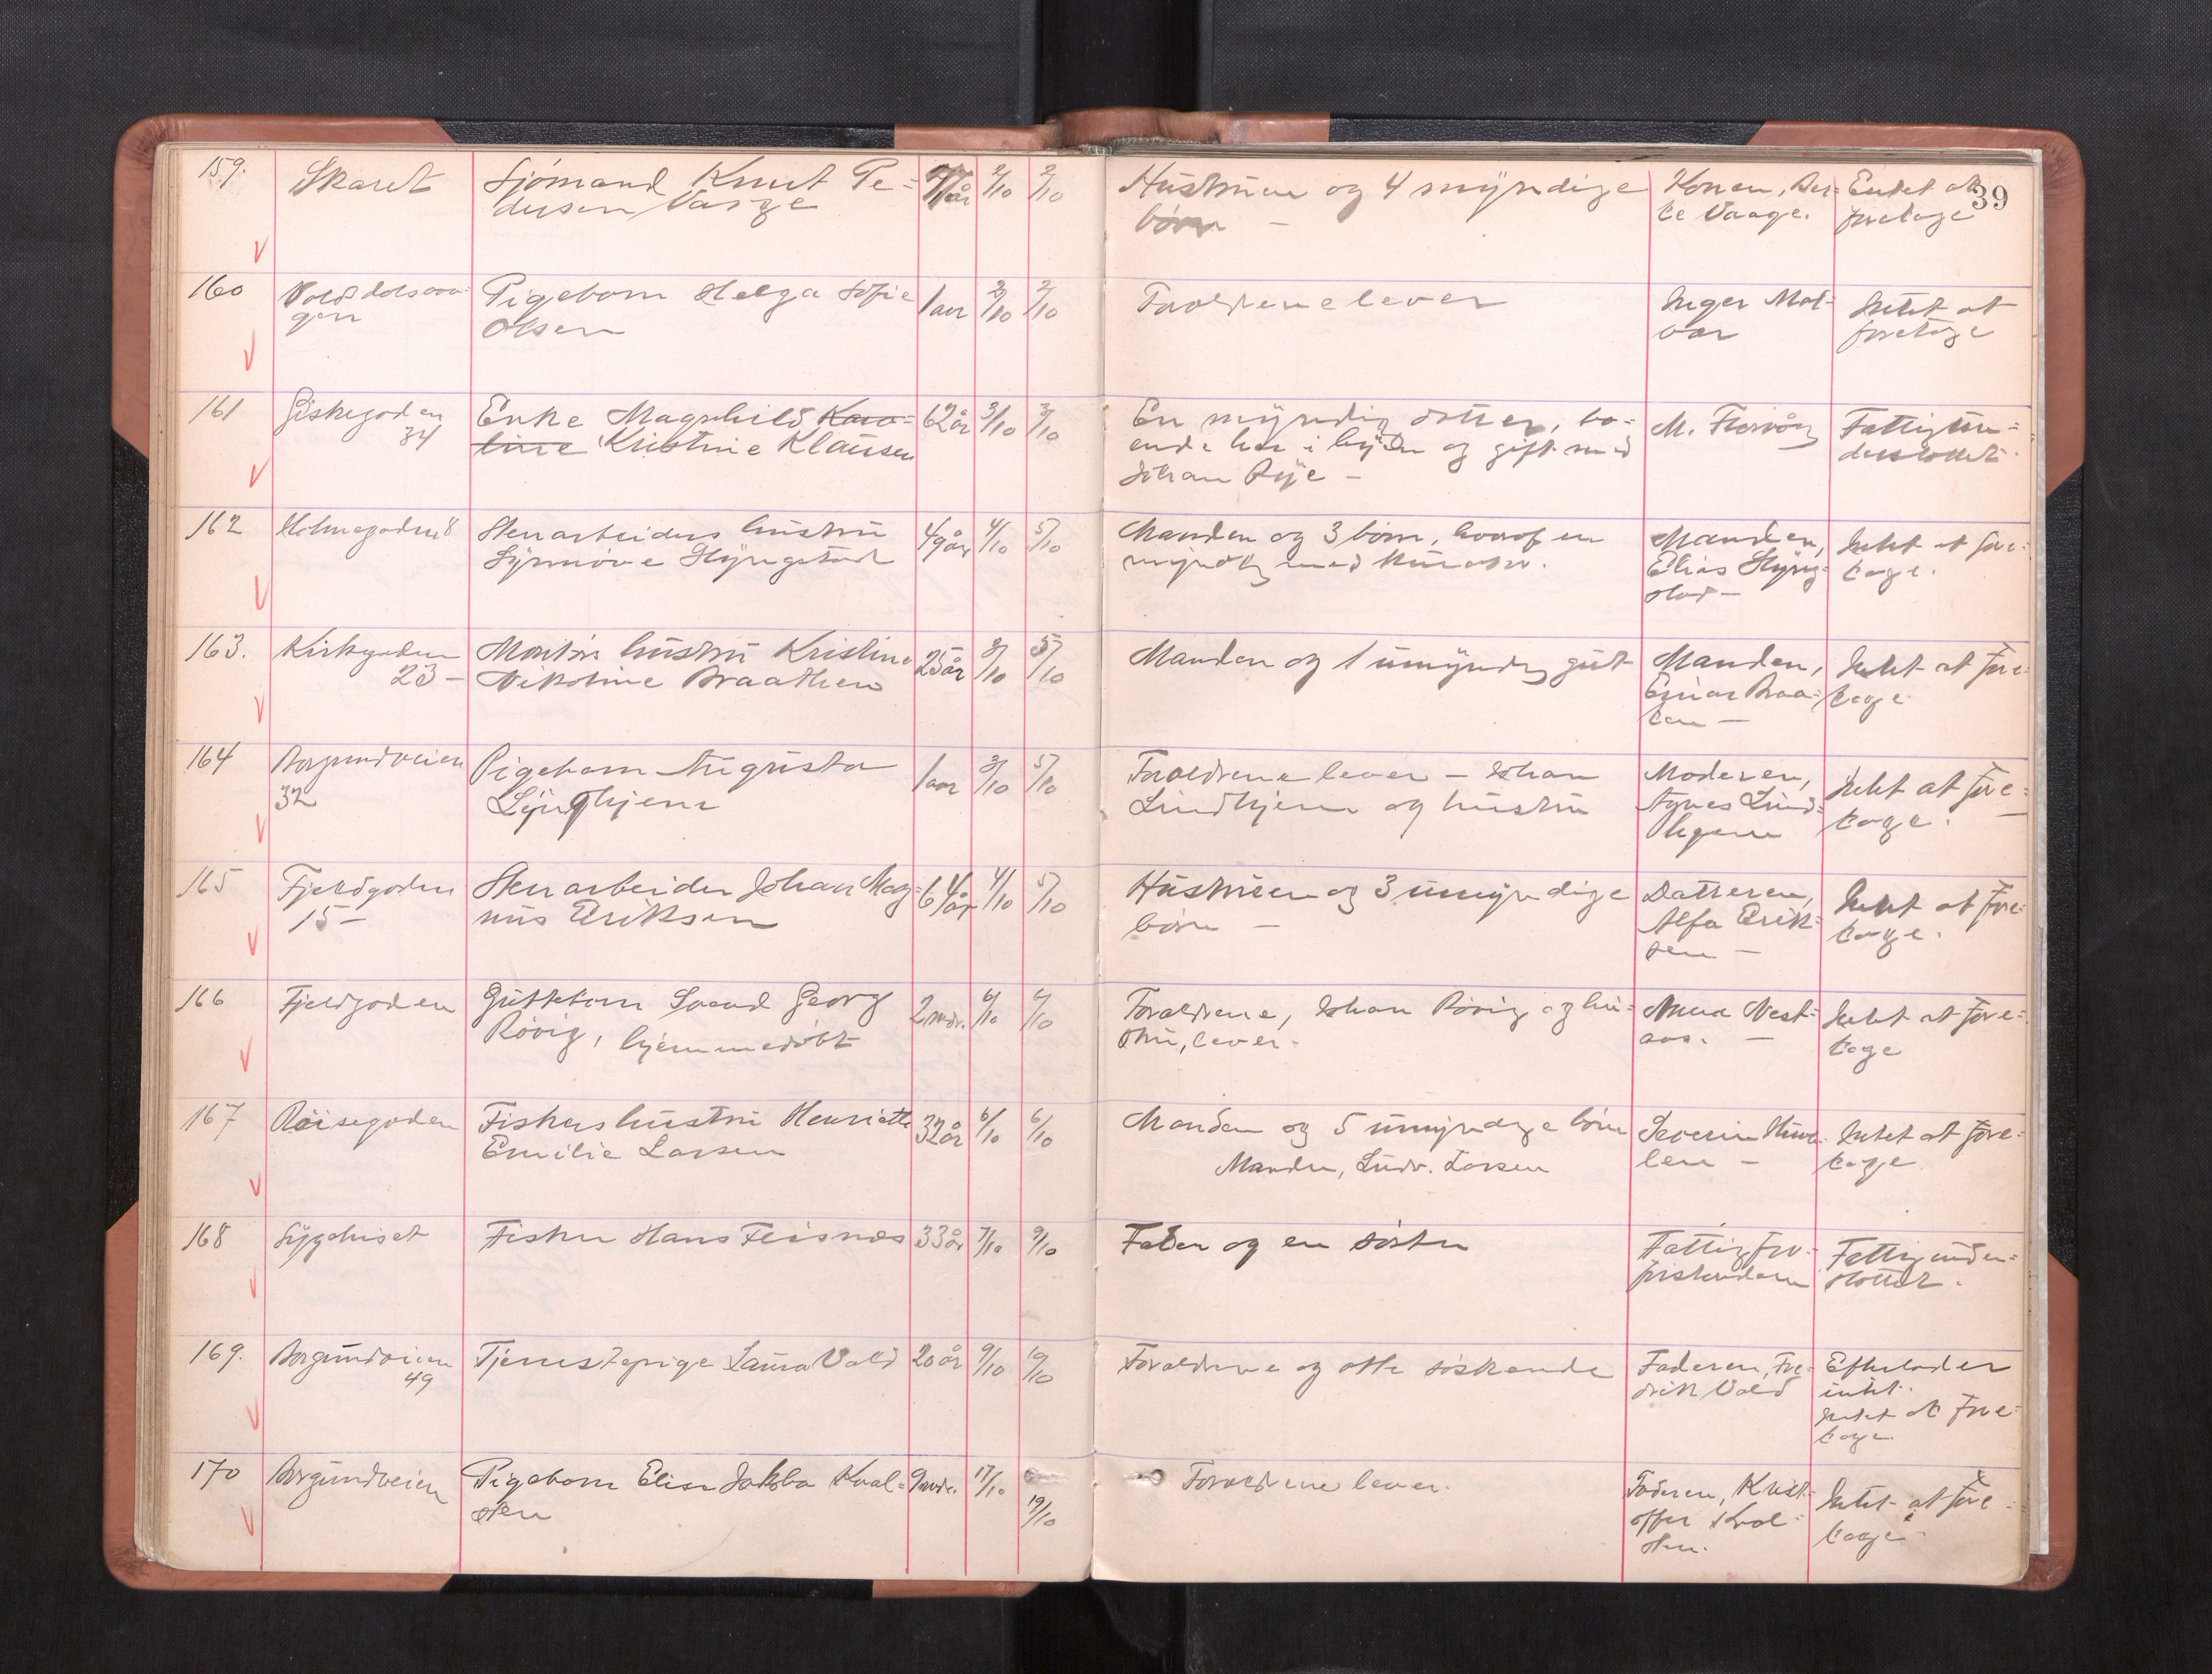 39
159.
Skaret
Sjömand Knut Pe=
dersen Vaage
77 år
2/10
2/10
Hustruen og 4 myndige
börn —
Konen, Ber=
te Vaage.
Intet at
foretage
160
Voldsdalsvaa=
gen
Pigebarn Helga Sofie
Olsen
1 aar
2/10
2/10
Forældrene lever
Inger Mol=
vær
Intet at
foretage
161
Giskegaden
34
Enke Magnhild Karo=
line Kristine Klausen
62 år
3/10
3/10
En myndig datter, bo=
ende her i byen og gift med
Johan Rye —
M. Florvåg
Fattigun=
derstöttet.
162
Holmegaden 8
Stenarbeiders hustru
Synnöve Hyngstad
49 år
4/10
5/10
Manden og 3 börn, hvoraf en
myndig med
Manden,
Elias Hyng=
stad —
Intet at fore=
tage.
163.
Kirkegaden
23 —
Montörs hustru Kristine
Nikoline Braathen
25 år
3/10
5/10
Manden og 1 umyndig gut
Manden,
Einar Braa=
ten —
Intet at fore=
tage.
164
Borgundveien
32
Pigebarn Augusta
Lynghjem
1 aar
3/10
5/10
Forældrene lever — Johan
Lindhjem og hustru
Moderen,
Agnes Lind=
hjem
Intet at fore=
tage. —
165
Fjeldgaden
15 —
Stenarbeider Johan Mag=
nus Eriksen
64 år
4/10
5/10
Hustruen og 3 umyndige
börn —
Datteren,
Alfa Erik=
sen —
Intet at fore=
tage.
166
Fjeldgaden
Guttebarn Svend Georg
Rövig, hjemmedöbt
2 mdr.
6/10
6/10
Forældrene, Johan Rövig og hu=
stru, lever.
Anna Nest=
aas. —
Intet at fore=
tage
167
Röisegaden
Fiskers hustru Henriette
Emilie Larsen
32 år
6/10
6/10
Manden og 5 umyndige börn
Manden, Ludv. Larsen
Severin
len —
Intet at fore=
tage.
168
Sygehuset
Fisker Hans Fleisnes
33 år
7/10
9/10
Fader og en söster
Fattigfor=
standeren
Fattigunder=
stöttet.
169.
Borgundveien
49
Tjenestepige Laura Vold
20 år
9/10
10/10
Forældrene og otte söskende
Faderen, Fre=
drik Vold
Efterlader
intet.
Intet at fore=
tage.
170
Borgundveien
Pigebarn Elise Jakoba Kval=
sten
9 mdr.
17/10
19/10
Forældrene lever.
Faderen, Krist=
offer Kval=
sten.
Intet at fore=
tage.